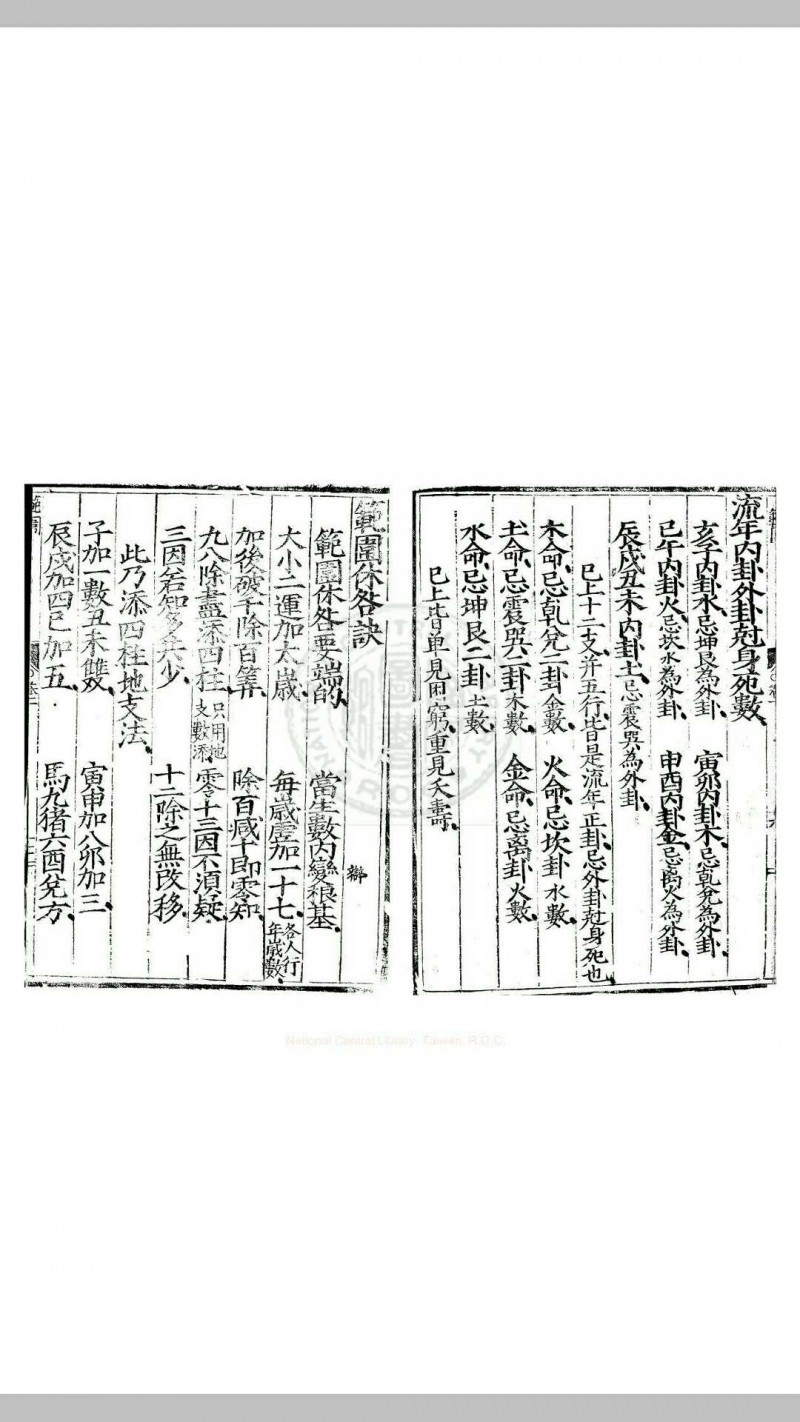 流年內卦外卦尅身死數
亥子內卦水忌坤艮為外卦 寅卯內卦木忌乾兌為外卦
巳午內卦火忌坎水為外卦 申酉內卦金忌离火為外卦
辰戌丑未內卦土忌震巽為外卦
已上十二支并五行皆是流年正卦忌外卦尅身死也
木命忌乾兌二卦金數 火命忌坎卦水數
土命忌震巽二卦木數 金命忌离卦火數
水命忌坤艮二卦土數
已上皆單見困窮重見夭壽
範圍休咎訣
範圍休咎要端的 當生數內變根基
大小二運加太歲 每歲虛加一十七各人行年歲數
加後破千除百筭 除百減十即零知
九八除盡添四柱只用地支數添 零十三因不須疑
三因若知多共少 十二除之無改移
此乃添四柱地支法
子加一數丑未雙 寅申加八卯加三
辰戌加四巳加五 馬九猪六酉兌方
National Central Library, Taiwan, R.O.C.